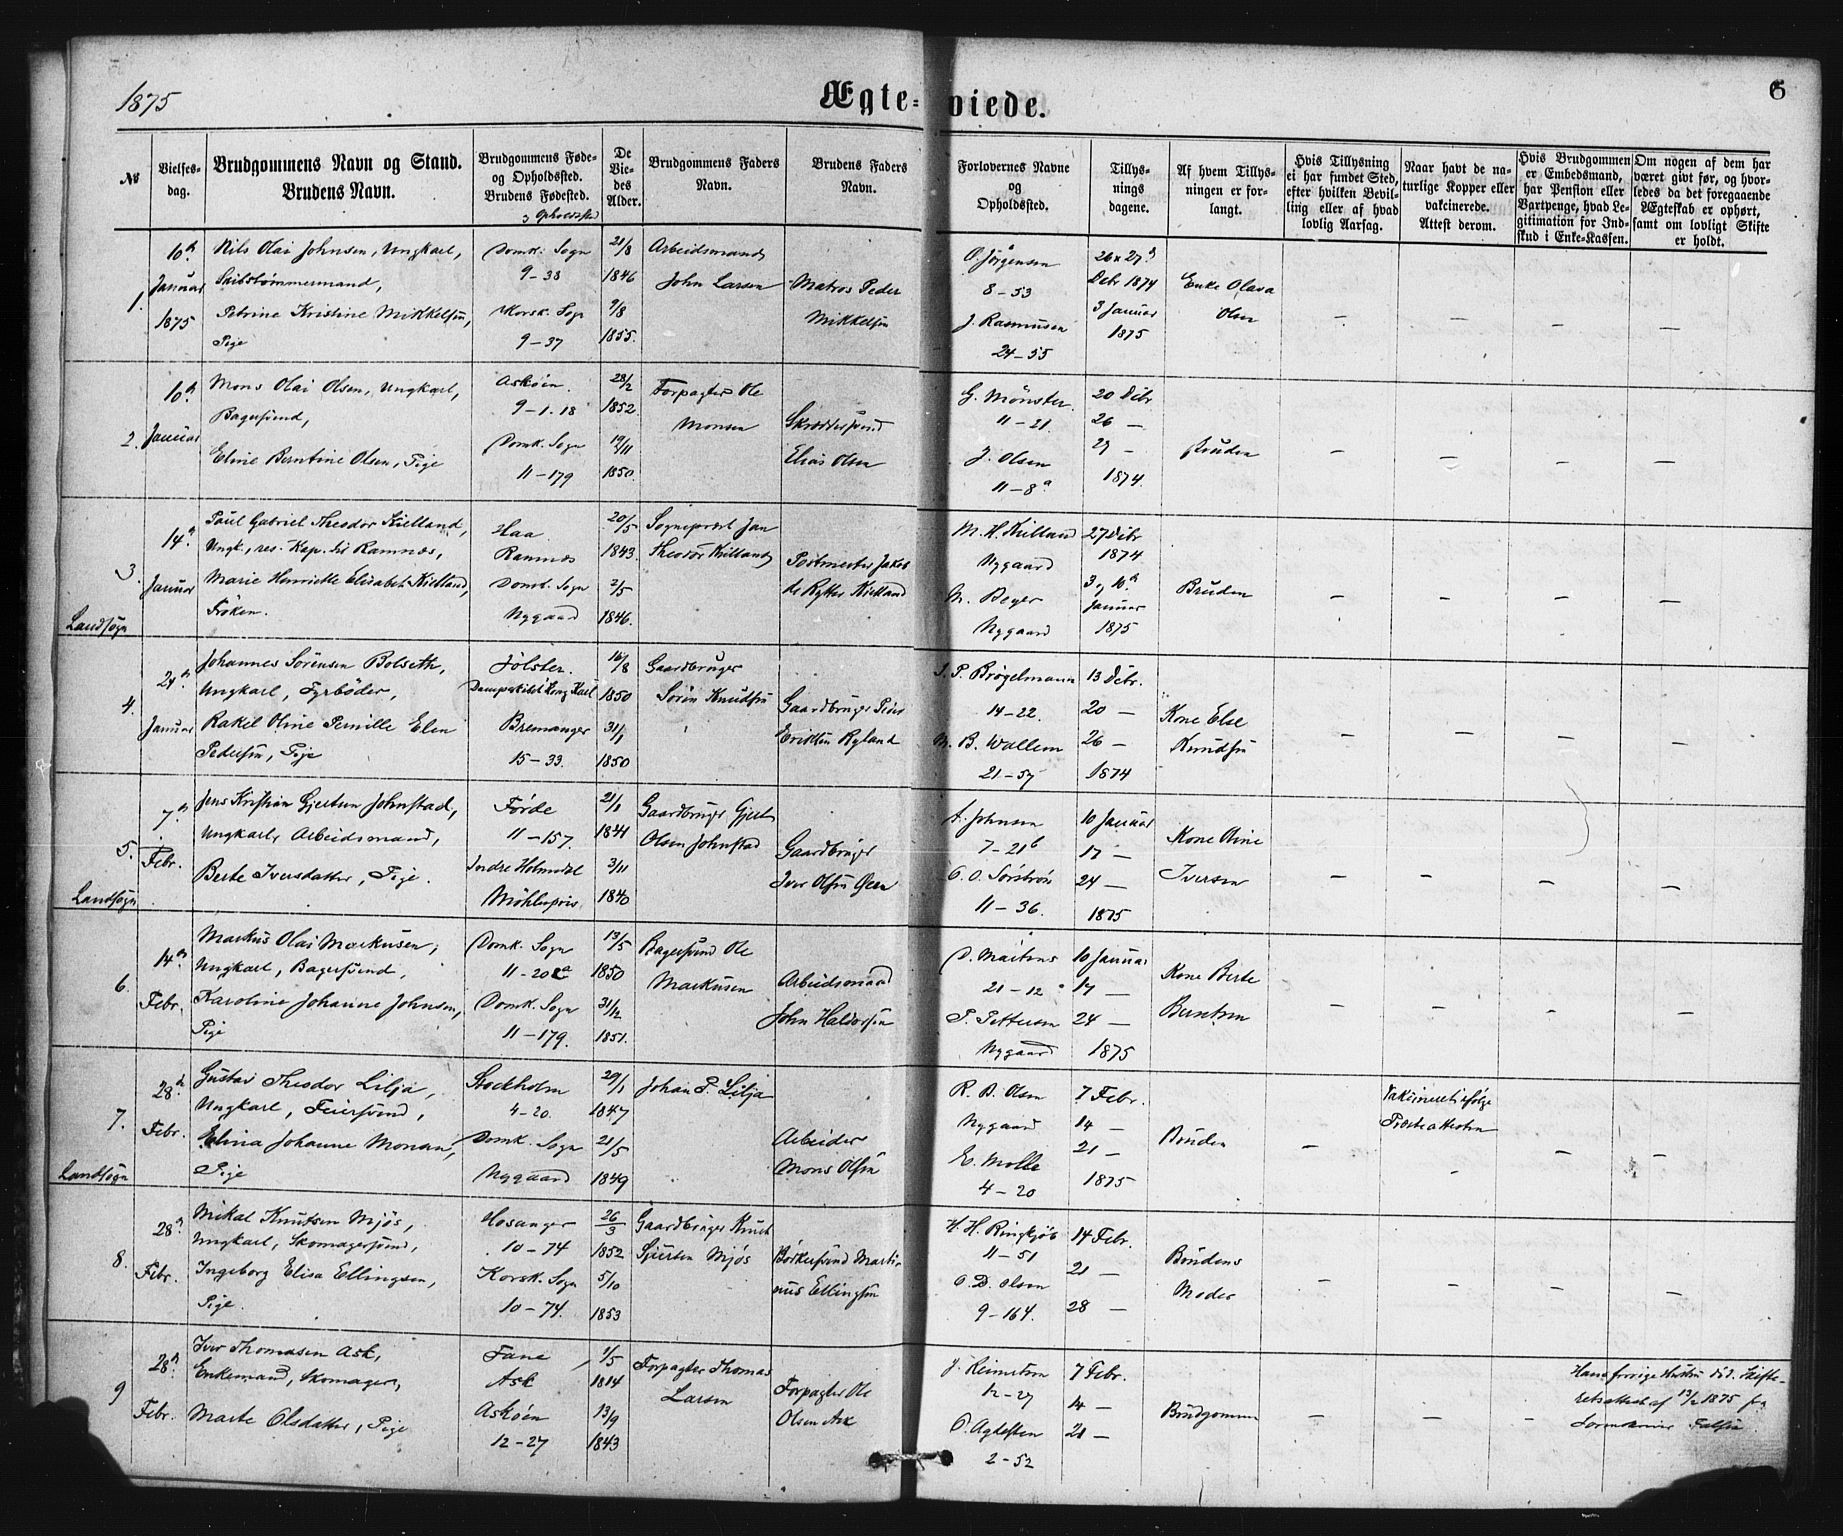 1875
Ægteviede.
6
№
Vielses-
dag.
Brudgommens Navn og Stand.
Brudens Navn.
Brudgommens Føde-
og Opholdsted.
Brudens Fødested.
og Opholdssted
De
Vie-
des
Alder.
Brudgommens Faders
Navn.
Brudens Faders
Navn.
Forlovernes Navne
og
Opholdsted.
Tillys-
nings
dagene.
Af hvem Tillys-
ningen er for-
langt.
Hvis Tillysning
ei har fundet Sted,
efter hvilken Bevil-
ling eller af hvad
lovlig Aarsag.
Naar havt de na-
turlige Kopper eller
vakcinerede.
Attest derom.
Hvis Brudgommen
er Embedsmand,
har Pension eller
Vartpenge, hvad Le-
gitimation for Ind-
skud i Enke-Kassen.
Om nogen af dem har
været givt før, og hvor-
ledes da det foregaaende
Ægteskab er ophørt,
samt om lovligt Skifte
er holdt.
1.
10de
Januar
1875
Nils Olai Johnsen, Ungkarl,
Skibstømmermand,
Petrine Kristine Mikkelsen,
Pige
Domk. Sogn
9-38
Korsk. Sogn
9-37
21/8
1846
9/8
1855.
Arbeidsmand
John Larsen
Matros Peder
Mikkelsen
O. Jørgensen
8-53
J. Rasmusen
24-55
26 27de
Debr 1874
3 Januar
1875
Enke Olava
Olsen
2.
10de
Januar
Mons Olai Olsen, Ungkarl,
Bagersvend,
Eline Berntine Olsen, Pige
Askøen.
9-1.18
Domk. Sogn
11-179
28/2
1852.
19/11
1850.
Forpagter Ole
Monsen
Skræddersvend
Elias Olsen
G. Mønster.
11-21.
J. Olsen
11-8a
20 Debr
26 —
27 —
1874.
Bruden
3.
Landsogn
14de
Januar
Paul Gabriel Theodor Kielland,
Ungk., res. Kap. til Ramnæs,
Marie Henriette Elisabet Kielland,
Frøken.
Haa.
Ramnæs
Domk. Sogn
Nygaard
20/5
1843.
2/5
1846.
Sogneprest Jan
Theodor Kielland
Postmester Jakob
de Rytter Kielland
M. H. Kielland
Nygaard
M. Beyer
Nygaard
27 Debr
1874
3 og 10de
Januar
1875
Bruden
4.
24de
Januar
Johannes Sørensen Bolseth,
Ungkarl, Fyrbøder,
Rakel Oline Pernille Elen
Pedersen, Pige
Jølster.
Dampskibet Kong Karl
Bremanger
15-33.
16/8
1850
31/1
1850
Gaardbruger
Søren Knudsen
Gaardbruger Peder
Eriksen Ryland
S. P. Brøgelmann
14-22.
M. B. Wallem
21-57
13 Debr.
20 —
26 —
1874
Kone Else
Knudsen
5.
Landsogn
7de
Febr.
Jens Kristian Gjertsen Johnstad,
Ungkarl, Arbeidsmand,
Berte Iversdatter, Pige.
Førde
11-157.
Indre Holmedal
Møhlenpris
21/1
1841
3/11
1840
Gaardbruger Gjert
Olsen Johnstad
Gaardbruger
Iver Olsen
A. Johnsen
7-21b
O. O. Sørstrøn
11-36.
10 Januar
17 —
24 —
1875
Kone Oline
Iversen
6.
14de
Febr.
Markus Olai Markusen,
Ungkarl, Bagersvend,
Karoline Johanne Johnsen,
Pige
Domk. Sogn
11-20a
Domk. Sogn
11-179.
13/5
1850
31/12
1851.
Bagersvend Ole
Markusen
Arbeidsmand
John Haldorsen
D. Martens
21-12
P. Pettersen
Nygaard
10 Januar
17 —
24 —
1875
Kone Berte
Berntsen
7.
Landsogn
28de
Febr.
Gustav Theodor Lilja,
Ungkarl, Feiersvend,
Elina Johanne Monsen,
Pige
Stockholm
4-20.
Domk. Sogn
Nygaard
29/1
1847
21/5
1849
Johan P. Lilja
Arbeider
Mons Olsen
R. B. Olsen
Nygaard
E. Molle
4-20
7 Febr.
14 —
21 —
1875
Bruden
Vakcineret ifølge
Presteattesten
8.
28de
Febr.
Mikal Knutsen Mjøs,
Ungkarl, Skomagersvend,
Ingeborg Elisa Ellingsen,
Pige.
Hosanger
10-74
Korsk. Sogn
10-74.
26/3
1852
5/10
1853
Gaardbruger Knut
Sjursen Mjøs
Bødkersvend Marti-
nus Ellingsen
H. H. Ringkjøb
11-51
O. D. Olsen
9-164.
14 Febr.
21 —
28 —
Brudens
Moder
9
28de
Febr.
Iver Thomasen Ask,
Enkemand, Skomager,
Marte Olsdatter, Pige
Fane
Ask
Askøen
12-27
1/5
1814
13/9
1843
Forpagter Thomas
Larsen
Forpagter Ole
Olsen Ask
J. Reimertsen
12-27
O. Agtesten
2-52
7 Febr.
14 —
21 —
Brudgommen
Hans forrige Hustru død. Skifte-
retsattest af 13/2 1875 fra
Sorenskriver